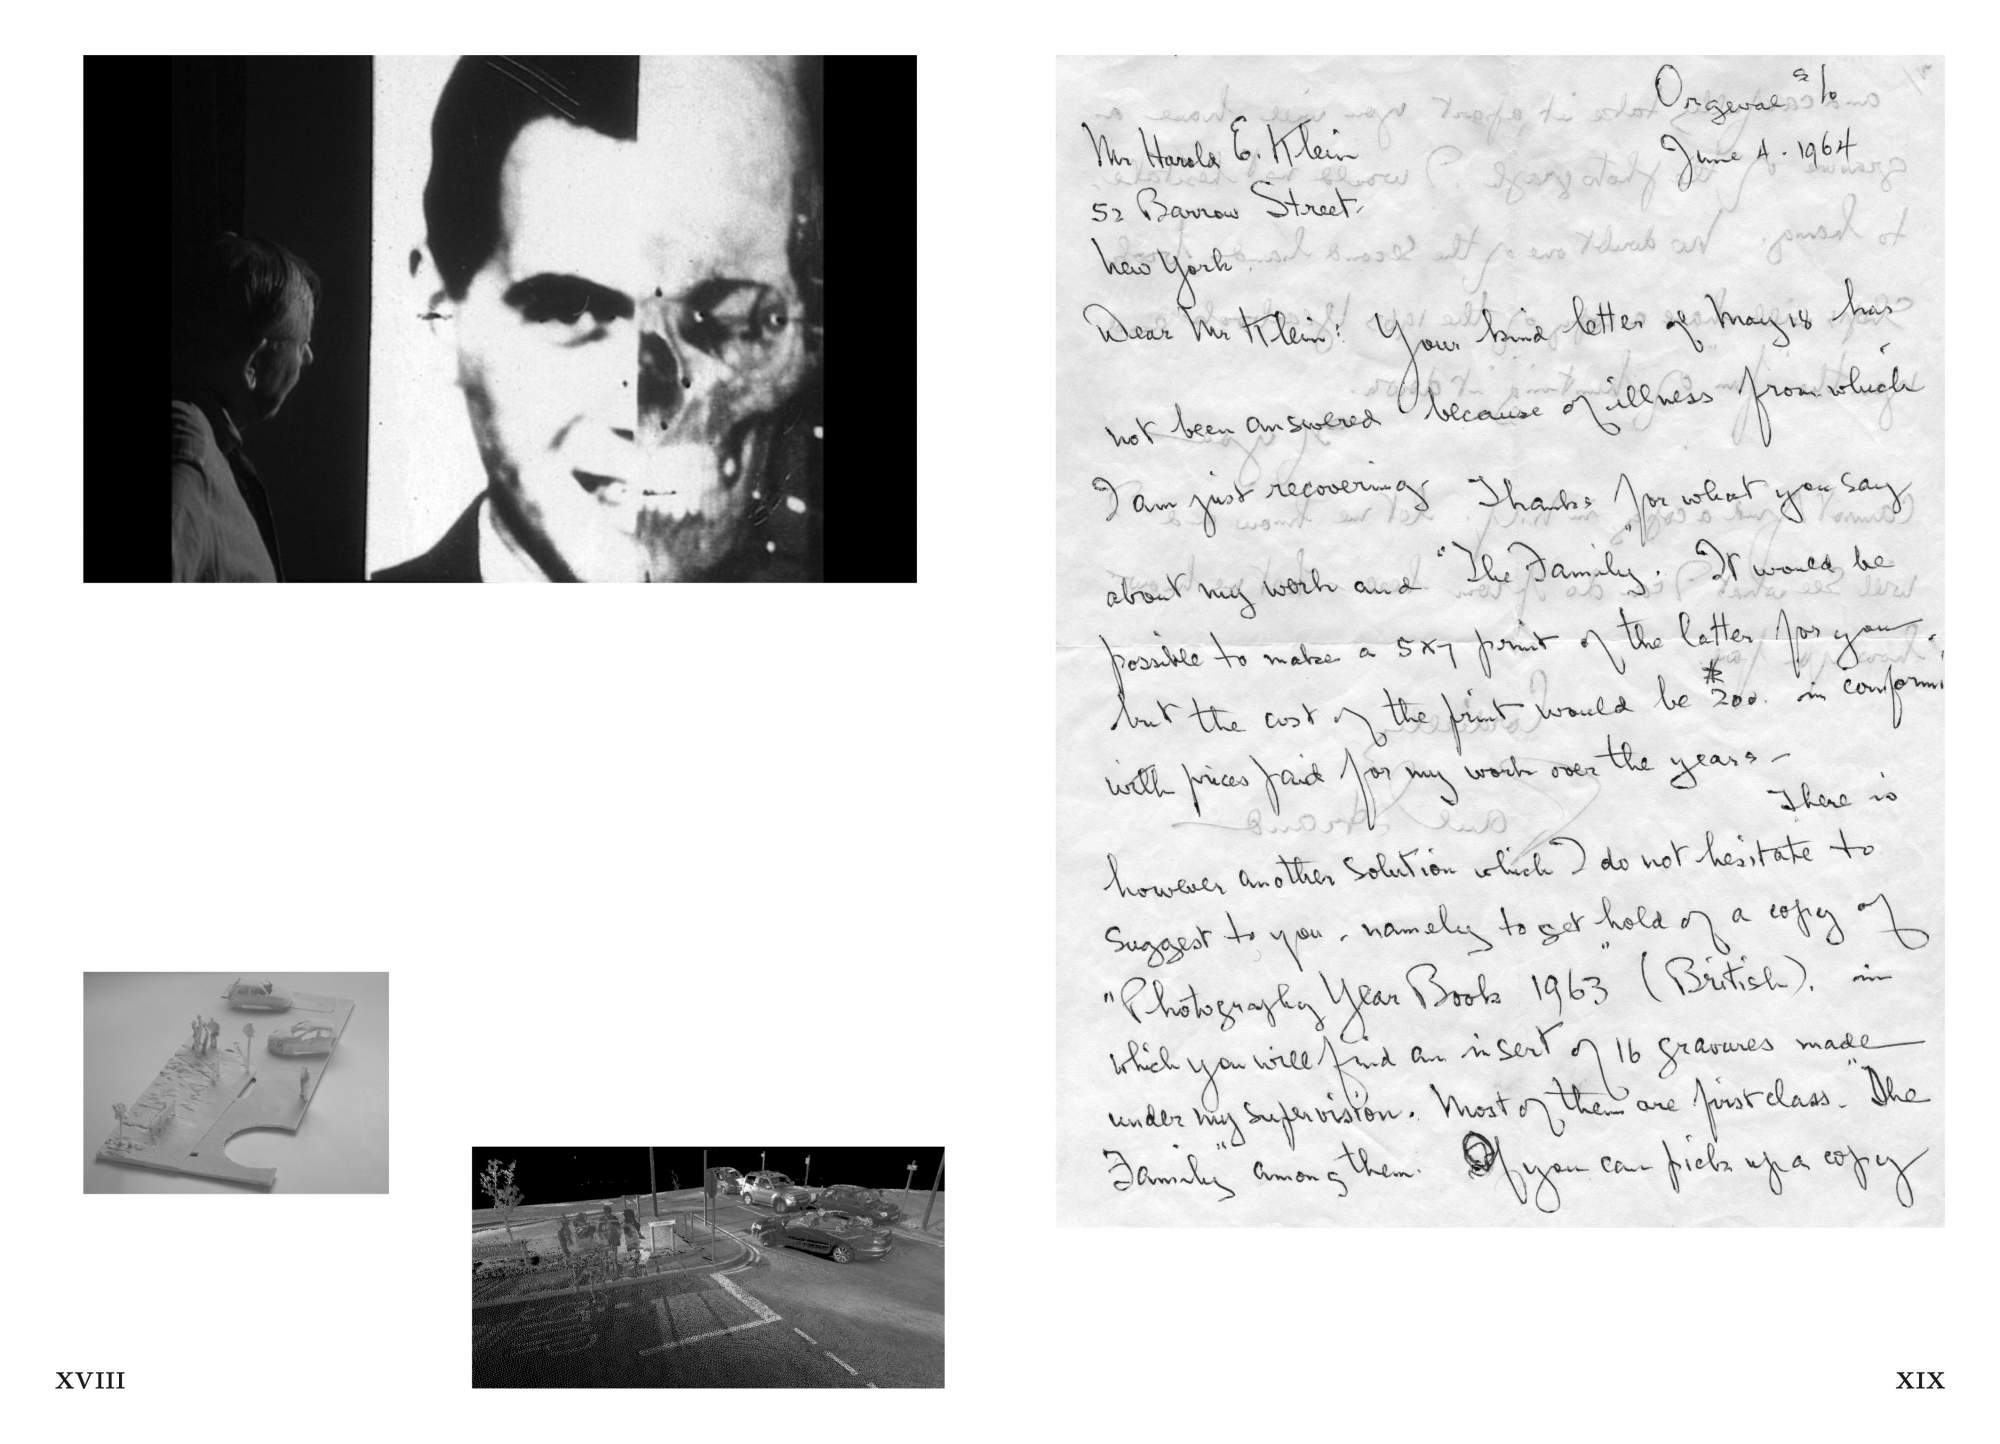 Orgeval S/O
June 4 - 1964
Mr Harold E. Klein
52 Barrow Street.
New York.
Dear Mr Klein: Your kind letter of May 18 has
not been answered because of illness from which
I am just recovering. Thanks for what you say
about my work and "The Family". It would be
possible to make a 5x7 print of the latter for you
but the cost of the print would be $200. in conformi
with prices paid for my work over the years -
There is
however another solution which I do not hesitate to
suggest to you, namely to get hold of a copy of
"Photography Year Book 1963" (British). in
which you will find an insert of 16 gravures made
under my supervision. Most of them are first class. "The
Family" among them. If you can pick up a copy
XVIII
XIX